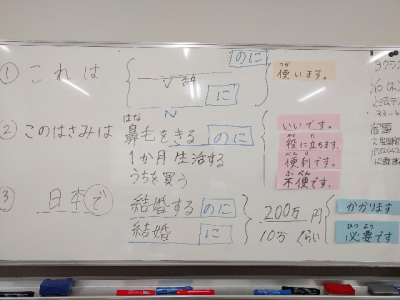 ① これは
のに
V辞
に
N
つか
使います。
② このはさみは
はな
鼻毛をきるのに
1か月生活する
うちを買う
いいです。
役に立ちます。
べんり
便利です。
ふべん
不便です。
③ 日本で
結婚するのに
結婚に
200万円
10万ぐらい
かかります
ひつよう
必要です
宿題